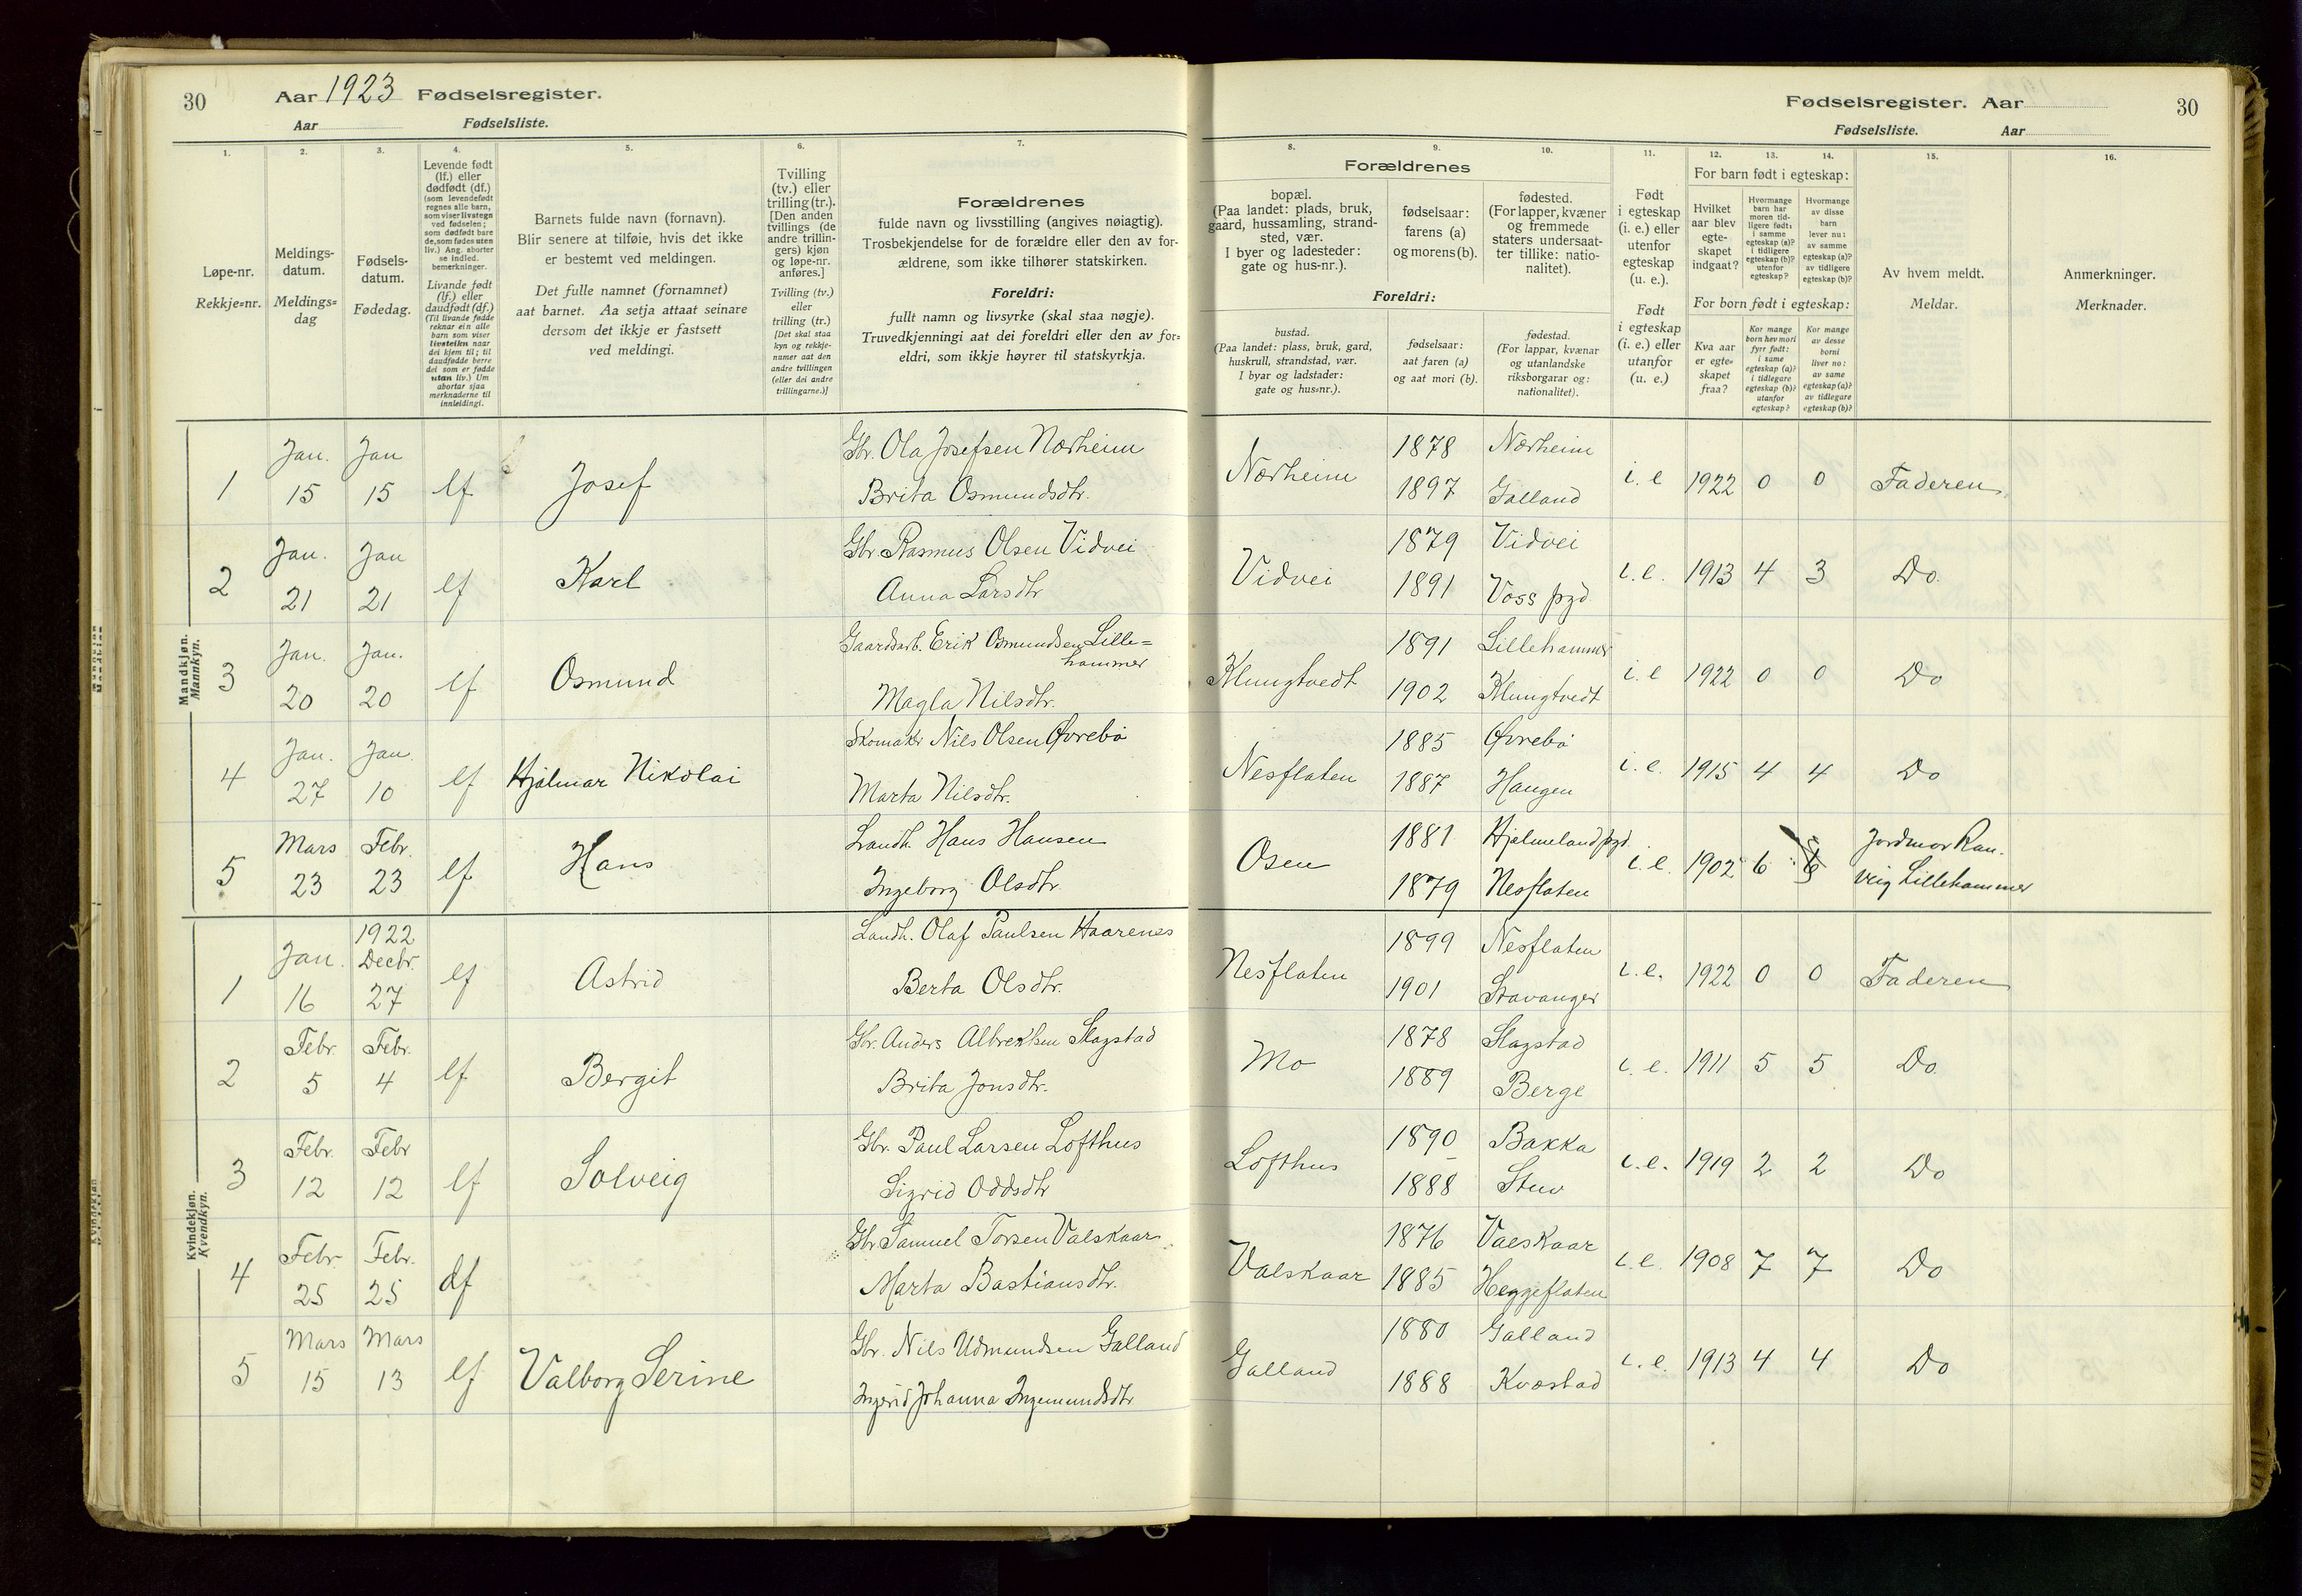 30 Aar 1923 Fødselsregister.
Aar Fødselsliste.
1.
Løpe-nr.
Rekkje=nr.
2.
Meldings-
datum.
Meldings=
dag
3.
Fødsels-
datum.
Fødedag.
4.
Levende født
(lf.) eller
dødfødt (df.)
(som levendefødt
regnes alle barn,
som viser livstegn
ved fødselen;
som dødfødt bare
de, som fødes uten
liv.) Ang. aborter
se indled.
bemerkninger.
Livande født
(lf.) eller
daudfødt (df.)
(Til livande fødde
reknar ein alle
barn som viser
livsteikn naar
dei kjem til; til
daudfødde berre
dei som er fødde
utan liv.) Um
abortar sjaa
merknaderne til
innleidingi.
5.
Barnets fulde navn (fornavn).
Blir senere at tilføie, hvis det ikke
er bestemt ved meldingen.
Det fulle namnet (fornamnet)
aat barnet. Aa setja attaat seinare
dersom det ikkje er fastsett
ved meldingi.
6.
Tvilling
(tv.) eller
trilling (tr.).
[Den anden
tvillings (de
andre trillin-
gers) kjøn
og løpe-nr.
anføres.]
Tvilling (tv.)
eller
trilling (tr.)
[Det skal staa
kyn og rekkje-
numer aat den
andre tvillingen
(eller dei andre
trillingarne.)]
7.
Forældrenes
fulde navn og livsstilling (angives nøiagtig).
Trosbekjendelse for de forældre eller den av for-
ældrene, som ikke tilhører statskirken.
Foreldri:
fullt namn og livsyrke (skal staa nøgje).
Truvedkjenningi aat dei foreldri eller den av for=
eldri, som ikkje høyrer til statskyrkja.
Mandkjøn.
Mannkyn.
1 Jan. 15 Jan 15 lf Josef
Gbr. Ola Josefsen Nærheim
Brita Osmundsdtr.
2 Jan. 21 Jan 21 lf Karl
Gbr. Rasmus Olsen Vidvei
Anna Larsdtr
3 Jan. 20 Jan. 20 lf Osmund
Gaardarb. Erik Osmundsen Lille=
hammer
Magla Nilsdtr.
4 Jan. 27 Jan. 10 lf Hjalmar Nikolai
Skomaker Nils Olsen Øvrebø
Marta Nilsdtr.
5 Mars 23 Febr. 23 lf Hans
Landh. Hans Hansen
Ingeborg Olsdtr.
Kvindekjøn.
Kvendkyn.
1 Jan. 16 1922 Decbr. 27 lf Astrid
Landh. Olaf Paulsen Haarenes
Berta Olsdtr.
2 Febr. 5 Febr. 4 lf Bergit
Gbr. Anders Albrektsen Slagstad
Brita Jonsdtr.
3 Febr. 12 Febr 12 lf Solveig
Gbr. Paul Larsen Lofthus
Sigrid Oddsdtr
4 Febr. 25 Febr. 25 df
Gbr Samuel Torsen Valskaar
Marta Bastiansdtr.
5 Mars 15 Mars 13 lf Valborg Serine
Gbr. Nils Udmundsen Galland
Ingrid Johanna Ingemundsdtr
Fødselsregister. Aar 30
Fødselsliste. Aar
8.
Forældrenes
bopæl.
(Paa landet: plads, bruk,
gaard, hussamling, strand-
sted, vær.
I byer og ladesteder:
gate og hus-nr.).
Foreldri:
bustad.
(Paa landet: plass, bruk, gard,
huskrull, strandstad, vær.
I byar og ladstader:
gate og hus=nr.).
9.
fødselsaar:
farens (a)
og morens (b).
fødselsaar:
aat faren (a)
og aat mori (b).
10.
fødested.
(For lapper, kvæner
og fremmede
staters undersaat-
ter tillike: natio-
nalitet).
fødestad.
(For lappar, kvænar
og utanlandske
riksborgarar og:
nationalitet).
11.
Født
i egteskap
(i. e.) eller
utenfor
egteskap
(u. e.).
Født
i egteskap
(i. e.) eller
utanfor
(u. e.)
12. 13. 14.
For barn født i egteskap:
Hvilket
aar blev
egte-
skapet
indgaat?
Hvormange
barn har
moren tid-
ligere født:
i samme
egteskap (a)?
i tidligere
egteskap (b)?
utenfor
egteskap?
Hvormange
av disse
barn
lever nu:
av samme
egteskap (a)?
av tidligere
egteskap (b)?
For born født i egteskap:
Kva aar
er egte=
skapet
fraa?
Kor mange
born hev mori
fyrr født:
i same
egteskap (a)?
i tidlegare
egteskap (b)?
utanfor
egteskap?
Kor mange
av desse
borni
liver no:
av same
egteskap (a)?
av tidlegare
egteskap (b)?
15.
Av hvem meldt.
Meldar.
16.
Anmerkninger.
Merknader.
Nærheim 1878 Nærheim
1897 Galland i. e 1922 0 0 Faderen
Vidvei 1879 Vidvei
1891 Voss pgd. i. e. 1913 4 3 Do.
Klungtvedt 1891 Lillehammer
1902 Klungtvedt i. e 1922 0 0 Do
Nesflaten 1885 Øvrebø
1887 Haugen i. e. 1915 4 4 Do
Osen 1881 Hjelmeland pgd.
1879 Nesflaten i. e. 1902 6 Jordmor Ran-
veig Lillehammer
Nesflaten 1899 Nesflaten
1901 Stavanger i. e. 1922 0 0 Faderen
Mo 1878 Slagstad
1889 Berge i. e. 1911 5 5 Do.
Lofthus 1890 Bakka
1888 Stuv i. e. 1919 2 2 Do
Valskaar 1876 Valskaar
1885 Heggeflaten i. e. 1908 7 7 Do
Galland 1880 Galland
1888 Kvæstad i. e. 1913 4 4 Do